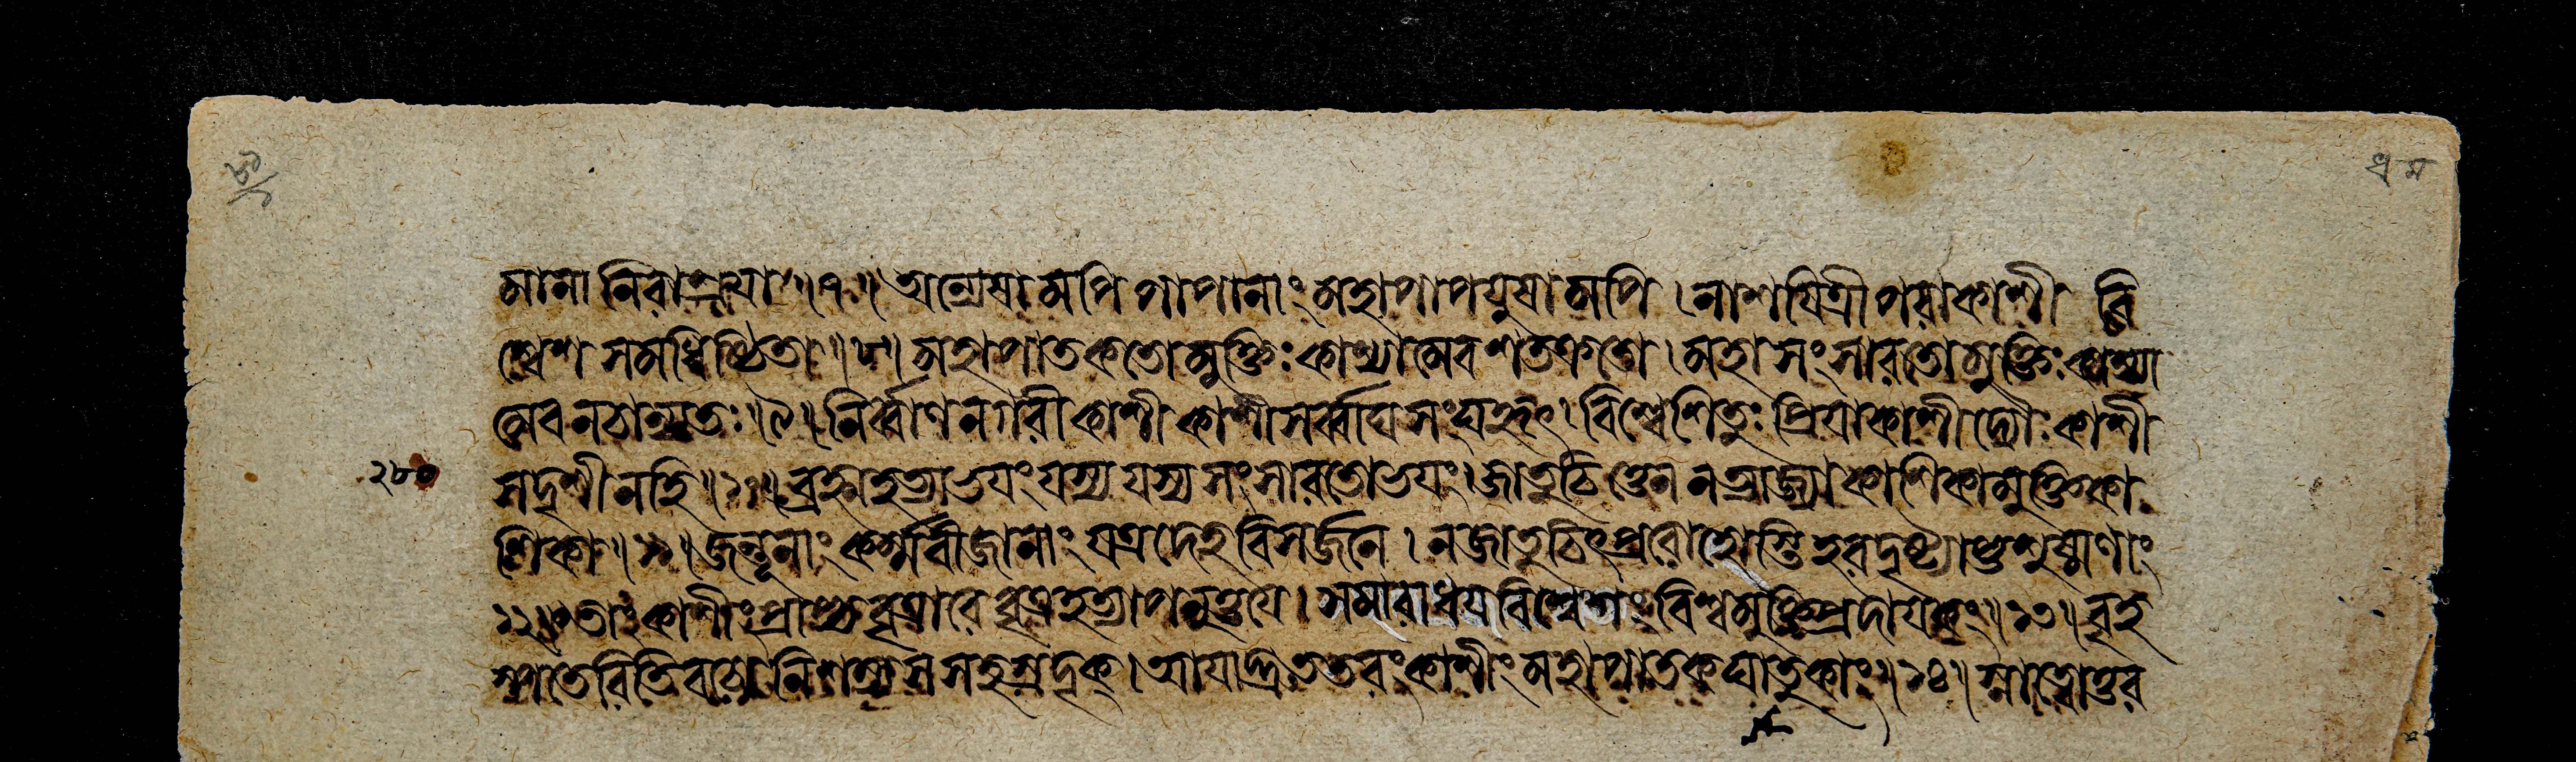 মানা নিরাশ্রয়া ॥ ৭ ॥ অন্যেষামপি পাপানাং মহাপাপযুষামপি । নাশয়িত্রী পরা কাশী বি
শ্বেশ সমধিষ্ঠিতা ॥ ৮ ॥ মহাপাতকতো মুক্তিঃ কাশ্যামেব শতক্রতো । মহাসংসারতো মুক্তিঃ কাশ্যা
মেব ন চান্যতঃ ॥ ৯ ॥ নির্ব্বাণনগরী কাশী কাশী সর্ব্বাঘসংঘহৃৎ । বিশ্বেশিতুঃ প্রিয়া কাশী দ্যৌঃ কাশী
২৮০ সদৃশী নহি ॥ ১০ ॥ ব্রহ্মহত্যাভয়ং যস্য যস্য সংসারতো ভয়ং । জাতুচিত্তেন ন ত্যাজ্যা কাশিকা মুক্তিকা
শিকা ॥ ১১ ॥ জন্তূনাং কর্ম্মবীজানাং যত্র দেহবিসর্জনে । ন জাতুচিৎপ্ররোহোস্তি হরদৃষ্ট্যাশুশুষ্মাণাং
১২ ॥ তাং কাশীং প্রাপ্য বৃত্রারে বৃত্রহত্যাপনুত্তয়ে । সমারাধয় বিশ্বেশং বিশ্বমুক্তিপ্রদায়কং ॥ ১৩ ॥ বৃহ
স্পতেরিতি বচো নিশম্য স সহস্রদৃক্ । আয়াদ্দ্রুততরং কাশীং মহাপাতকঘাতুকাং ॥ ১৪ ॥ স্নাত্বোত্তর